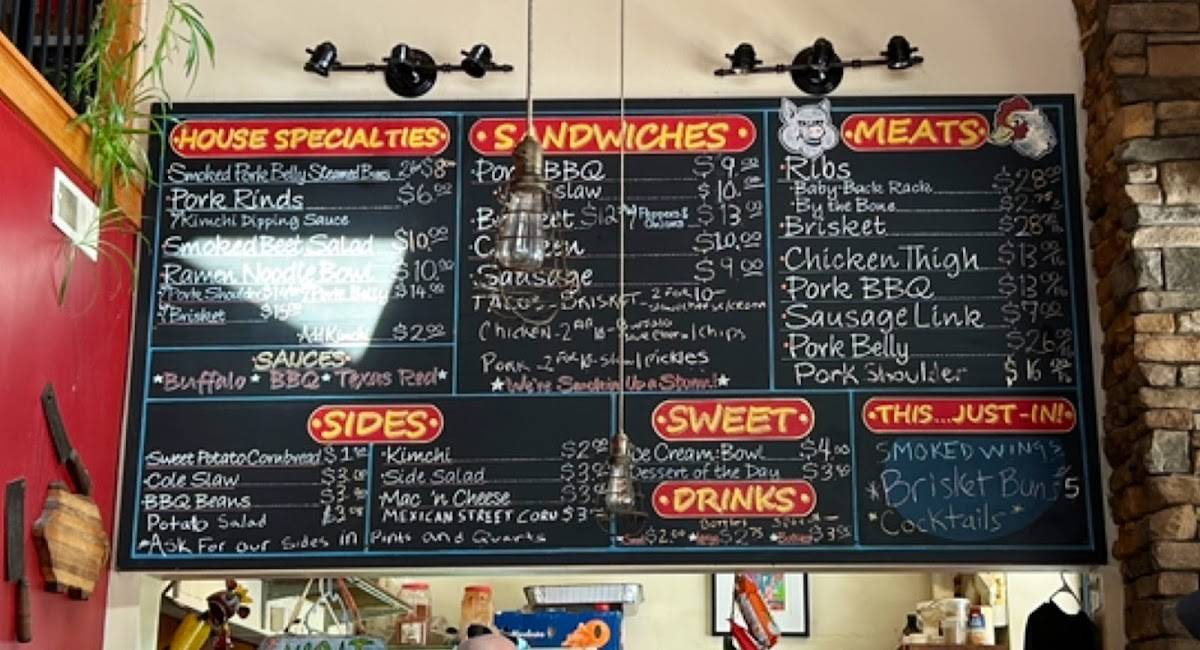 HOUSE SPECIALTIES
Smoked Pork Belly Steamed Buns 2 for $8
Pork Rinds $6.00
w/Kimchi Dipping Sauce
Smoked Beet Salad $10.00
Ramen Noodle Bowl $10.00
w/Pork Shoulder $14.00 w/Pork Belly $14.00
w/Brisket $15.00
Add Kimchi $2.00
SAUCES
*Buffalo * BBQ * Texas Red*
SANDWICHES
Pork BBQ $9.00
slaw $10.
$12 w/Peppers & Onions $13.00
$10.00
Sausage $9.00
TACOS BRISKET 2 FOR 10-
CHICKEN-2 FOR 10-Buffalo / chips
PORK-2 FOR 10-slaw/pickles
*We're Smokin Up a Storm!*
MEATS
Ribs
Baby Back Rack $28
By the Bone $2.
Brisket $28
Chicken Thigh $13
Pork BBQ $13
Sausage Link $7.00
Pork Belly $26
Pork Shoulder $16
SIDES
Sweet Potato Cornbread $1.
Cole Slaw $3.
BBQ Beans $3.
Potato Salad $3.
Kimchi $2.00
Side Salad $3.
Mac 'n Cheese $3.
MEXICAN STREET CORN $3
*Ask For our Sides in Pints and Quarts
SWEET
Ice Cream: Bowl $4.00
Dessert of the Day $3
DRINKS
$2.00 $2.75 $3
THIS...JUST-IN!
SMOKED WINGS
*Brisket Buns 5
*Cocktails*